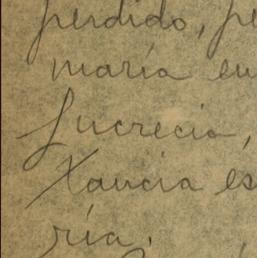 perdido, pe
maría en
Lucrecia,
tancia es
ría.